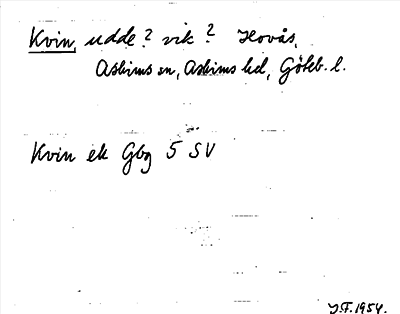 Kvin, udde? vik? Hovås,
Askims sn, Askims hd, Göteb. l.
Kvin ek Gbg 5 SV
J.F. 1954.